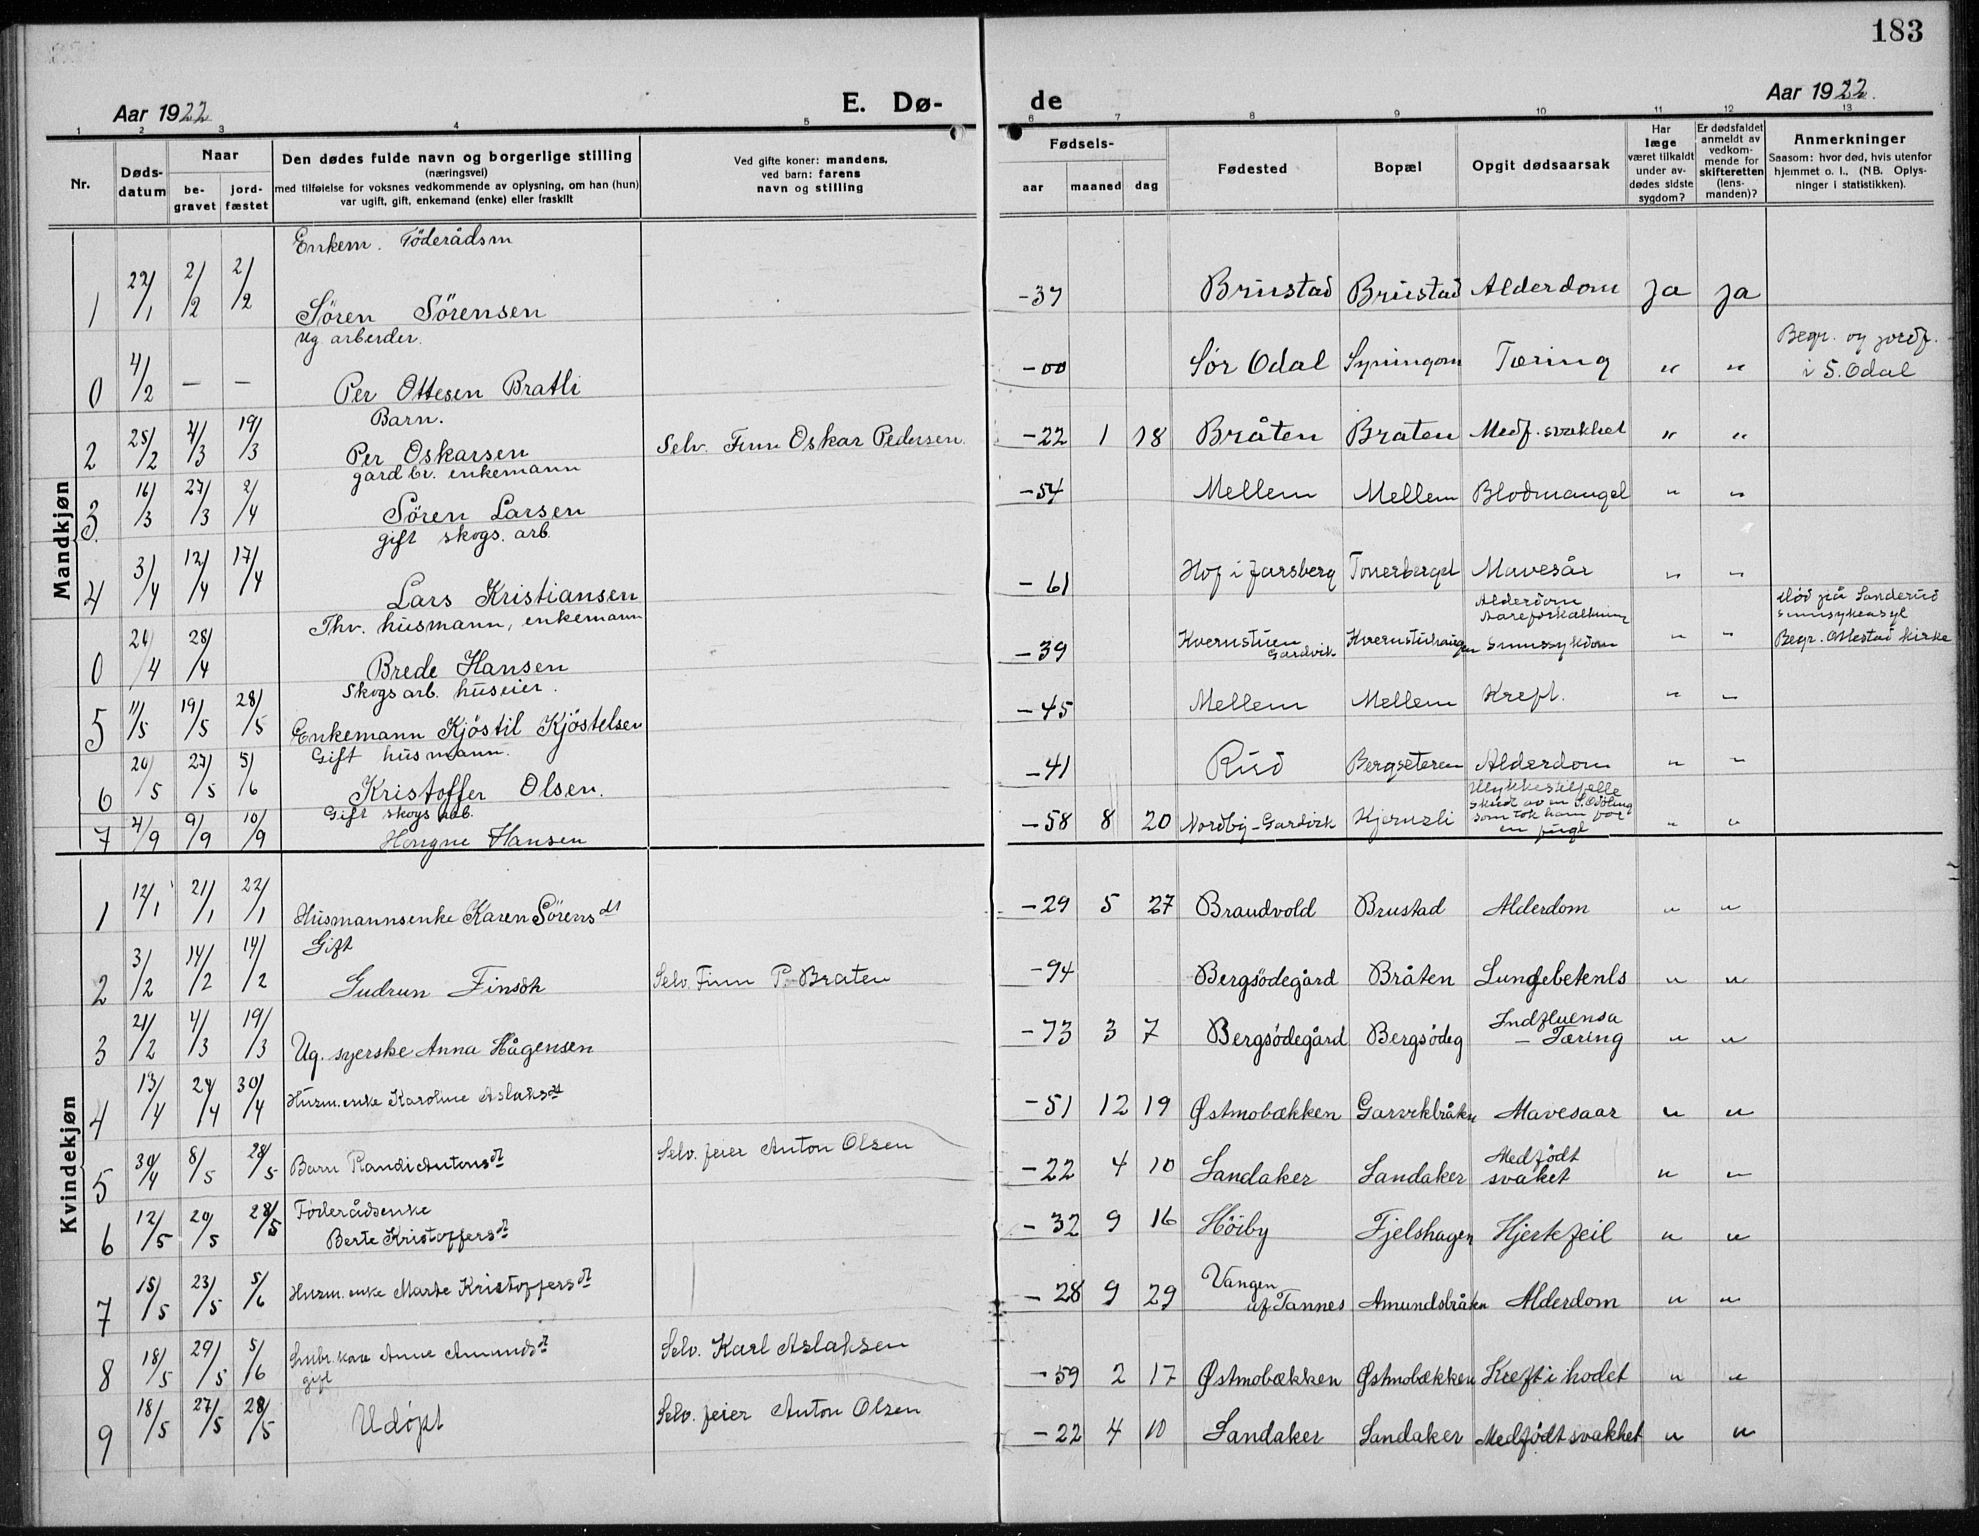 183
Aar 1922
E. Dø-
de
Aar 1922.
1 2 3 4 5 6 7 8 9 10 11 12 13
Nr.
Døds-
datum
Naar
be-
gravet
jord-
fæstet
Den dødes fulde navn og borgerlige stilling
(næringsvei)
med tilføielse for voksnes vedkommende av oplysning, om han (hun)
var ugift, gift, enkemand (enke) eller fraskilt
Ved gifte koner: mandens,
ved barn: farens
navn og stilling
Fødsels-
aar maaned dag
Fødested
Bopæl
Opgit dødsaarsak
Har
læge
været tilkaldt
under av-
dødes sidste
sygdom?
Er dødsfaldet
anmeldt av
vedkom-
mende for
skifteretten
(lens-
manden)?
Anmerkninger
Saasom: hvor død, hvis utenfor
hjemmet o. l.. (NB. Oplys-
ninger i statistikken).
Mandkjøn
Enkem. Föderådsm
1 22/1 2/2 2/2 Sören Sörensen -37 Brustad Brustad Alderdom Ja Ja
ug arbeider.
0 4/2 — — Per Ottesen Bratli -00 Sør Odal Tæring " " Begr. og jordf.
i S. Odal
Barn.
2 25/2 4/3 19/3 Per Oskarsen Selv. Finn Oskar Pedersen -22 1 18 Bråten Braten Medf. svakhet " "
gardbr. enkemann
3 16/3 27/3 2/4 Sören Larsen -54 Mellem Mellem Blodmangel " "
gift skogs. arb.
4 3/4 12/4 17/4 Lars Kristiansen -61 Hof i Jarsberg Tonerberget Mavesår " "
Thv. husmann, enkemann
Alderdom
Aareforkalkning
død på Sanderud
sinnsykeasyl
0 20/4 28/4 Brede Hansen -39 Kvernstuen
Gardvik Kvernstuhaugen sinnssykdom " " Begr. Ottestad kirke
Skogsarb. huseier.
5 11/5 19/5 28/5 Enkemann Kjöstil Kjöstelsen -45 Mellem Mellem Kreft. " "
Gift husmann.
6 20/5 27/5 5/6 Kristoffer Olsen. -41 Rud Bergseteren Alderdom " "
Gift skogs arb.
Ulykkestilfelle
skudt av en
som tok ham for
en fugl
7 4/9 9/9 10/9 Hongne Hansen -58 8 20 Nordby-Gardvik Kjernsli " "
Kvindekjøn
1 12/1 21/1 22/1 Husmannsenke Karen Sörensdt -29 5 27 Brandvold Brustad Alderdom " "
Gift
2 3/2 14/2 14/2 Gudrun Finsdtr Selv. Finn P. Braten -94 Bergsödegård Bråten Lungebetenls " "
3 21/2 4/3 19/3 Ug. syerske Anna Hågensen -73 3 7 Bergsödegård Bergsödeg Indfluensa
- Tæring " "
4 13/4 24/4 30/4 Husm. enke Karoline Aslaksdt -51 12 19 Østmobækken Garvikbråten Mavesaar " "
5 30/4 8/5 28/5 Barn Randi Antonsdt Selv. feier Anton Olsen -22 4 10 Sandaker Sandaker Medfödt
svaket " "
Föderådsenke
6 12/5 20/5 28/5 Berte Kristoffersdt -32 9 16 Höiby Fjelshagen Hjertefeil " "
7 15/5 23/5 5/6 Husm. enke Marte Kristoffersdt -28 9 29 Vangen
af Tannes Amundsbråten Alderdom " "
8 18/5 29/5 5/6 Smbr. kone Anne Amundsdt
gift Selv. Karl Aslaksen -59 2 17 Østmobækken Østmobækken Kreft i hodet " "
9 18/5 27/5 28/5 Udöpt Selv. feier Anton Olsen -22 4 10 Sandaker Sandaker Medfödt svakhet " "